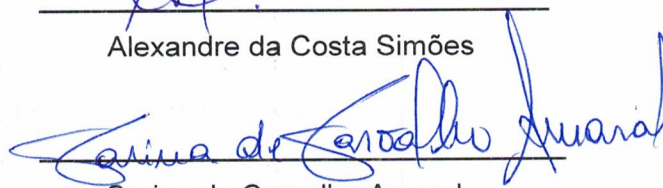 Alexandre da Costa Simões
Carina de Carvalho Amaral
Carina de Carvalho Amaral